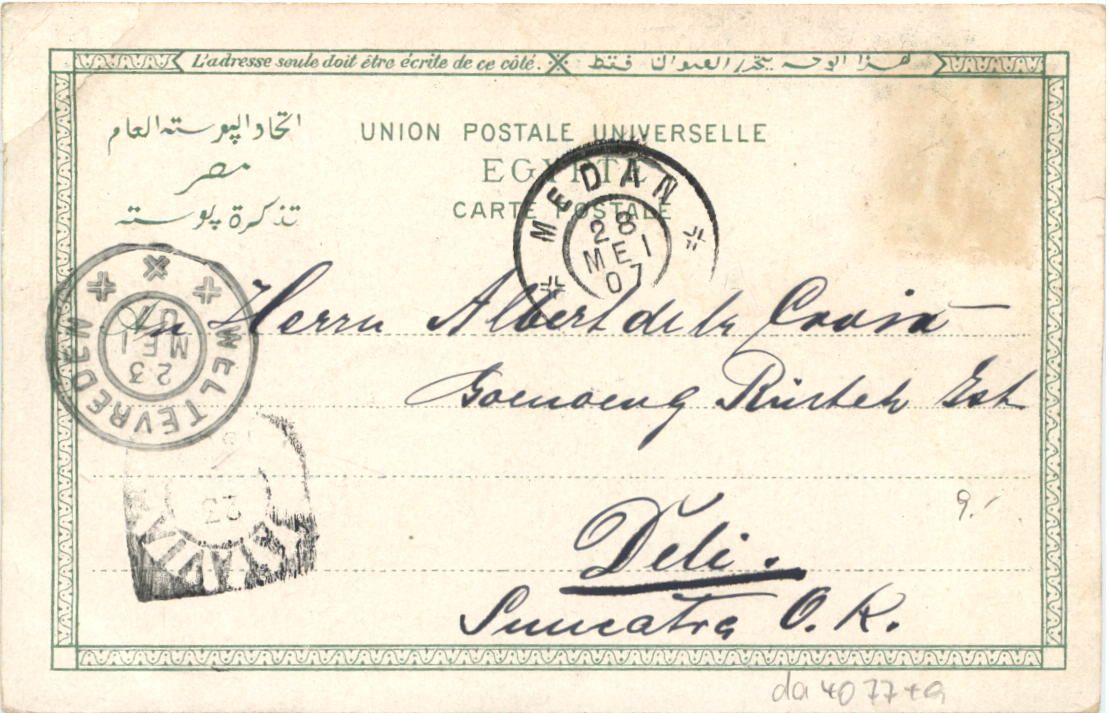 L'adresse seule doit être écrite de ce côté.
هذا الوجه يتحرر العنوان فقط
اتحاد البوسته العام
مصر
تذكرة بوسته
UNION POSTALE UNIVERSELLE
EGYPTE
CARTE POSTALE
MEDAN
28
MEI
07
WELTEVREDEN
23
MEI
07
An Herrn Albert de la Croix
Goenoeng Rinteh Est
Deli.
Sumatra O. K.
BATAVIA
23
9.-
da 4077+a